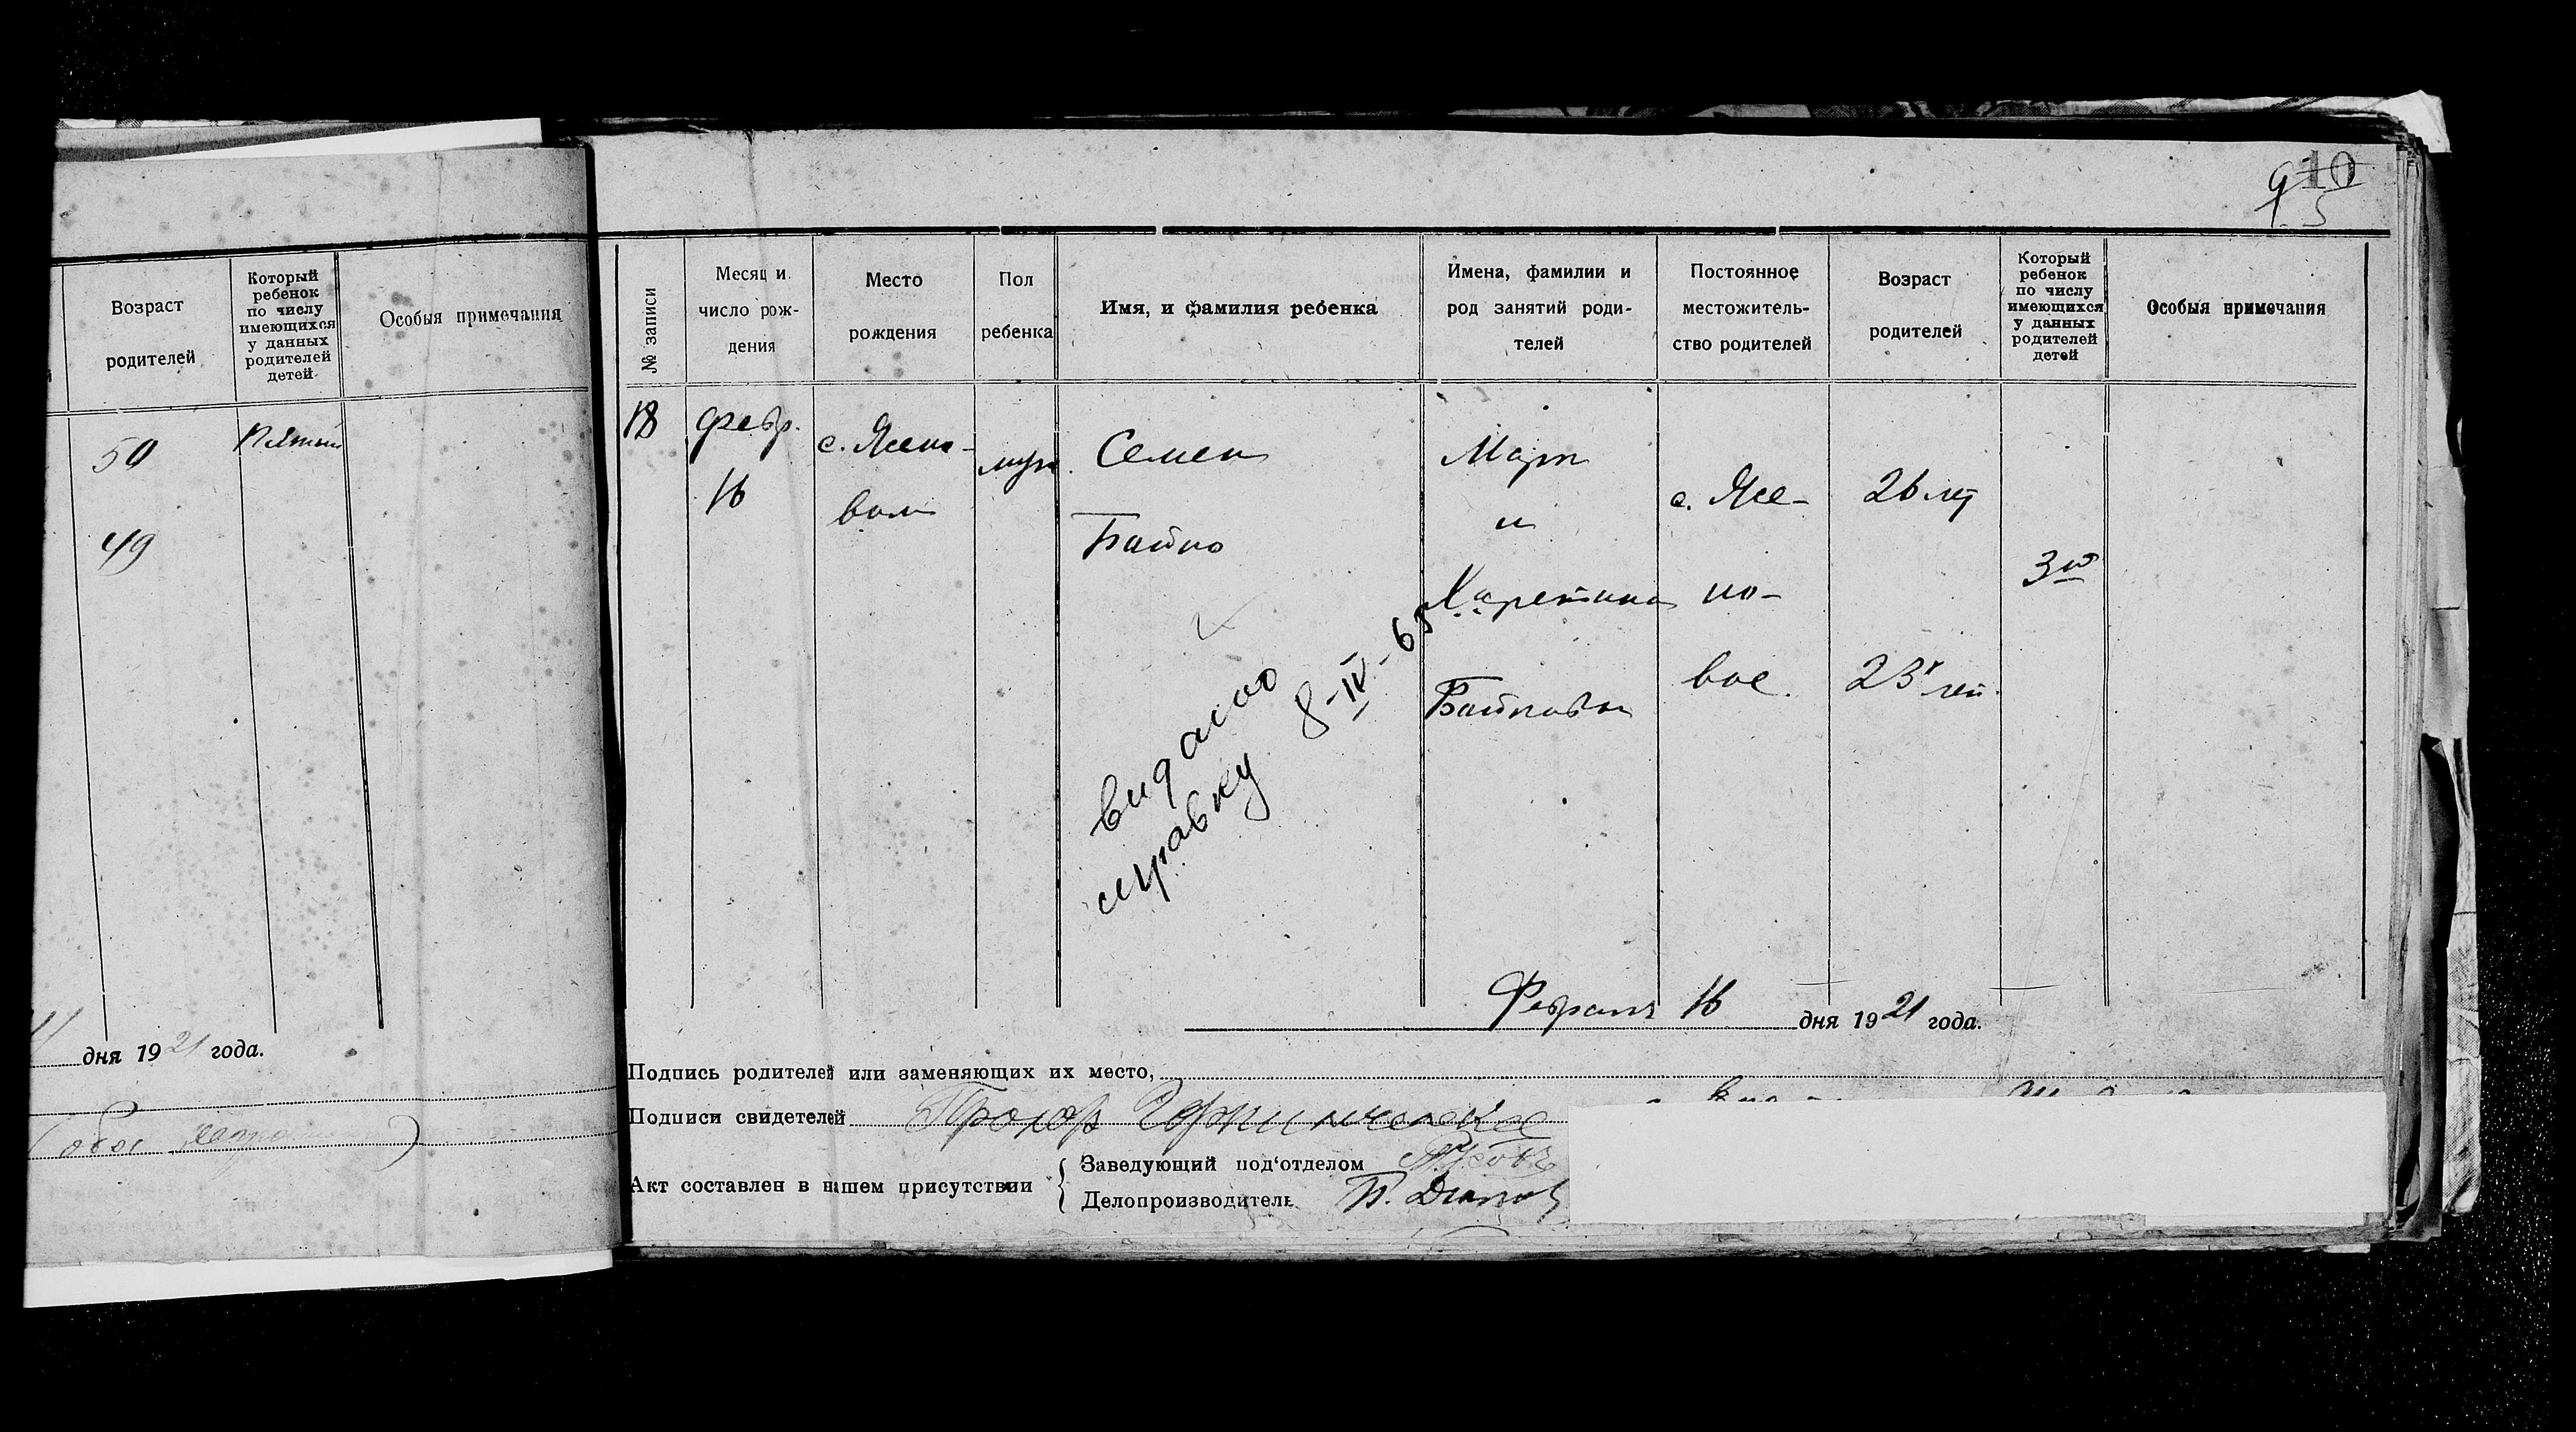 Возраст
родителей
Который
ребенок
по числу
имеющихся
у данных
родителей
детей
Особыя примечания
50
49
дня 1921 года.
10
№ записи
Месяц и
число рож-
дения
Место
рождения
Пол
ребенка
Имя, и фамилия ребенка
Имена, фамилии и
род занятий роди-
телей
Постоянное
местожитель-
ство родителей
Возраст
родителей
Который
ребенок
по числу
имеющихся
у данных
родителей
детей
Особыя примечания
18
февр.
16
с. Ясено-
вом
муж.
Семен
Байко
Марк
и
Харетина
Байковы
с. Ясе-
но-
вое.
26 лет
23 лет
3й
видано
справку 8-IV-65
Февраля 16 дня 1921 года.
Подпись родителей или заменяющих их место,
Подписи свидетелей Прохор
Акт составлен в нашем присутствии
Заведующий под‘отделом
Делопроизводитель